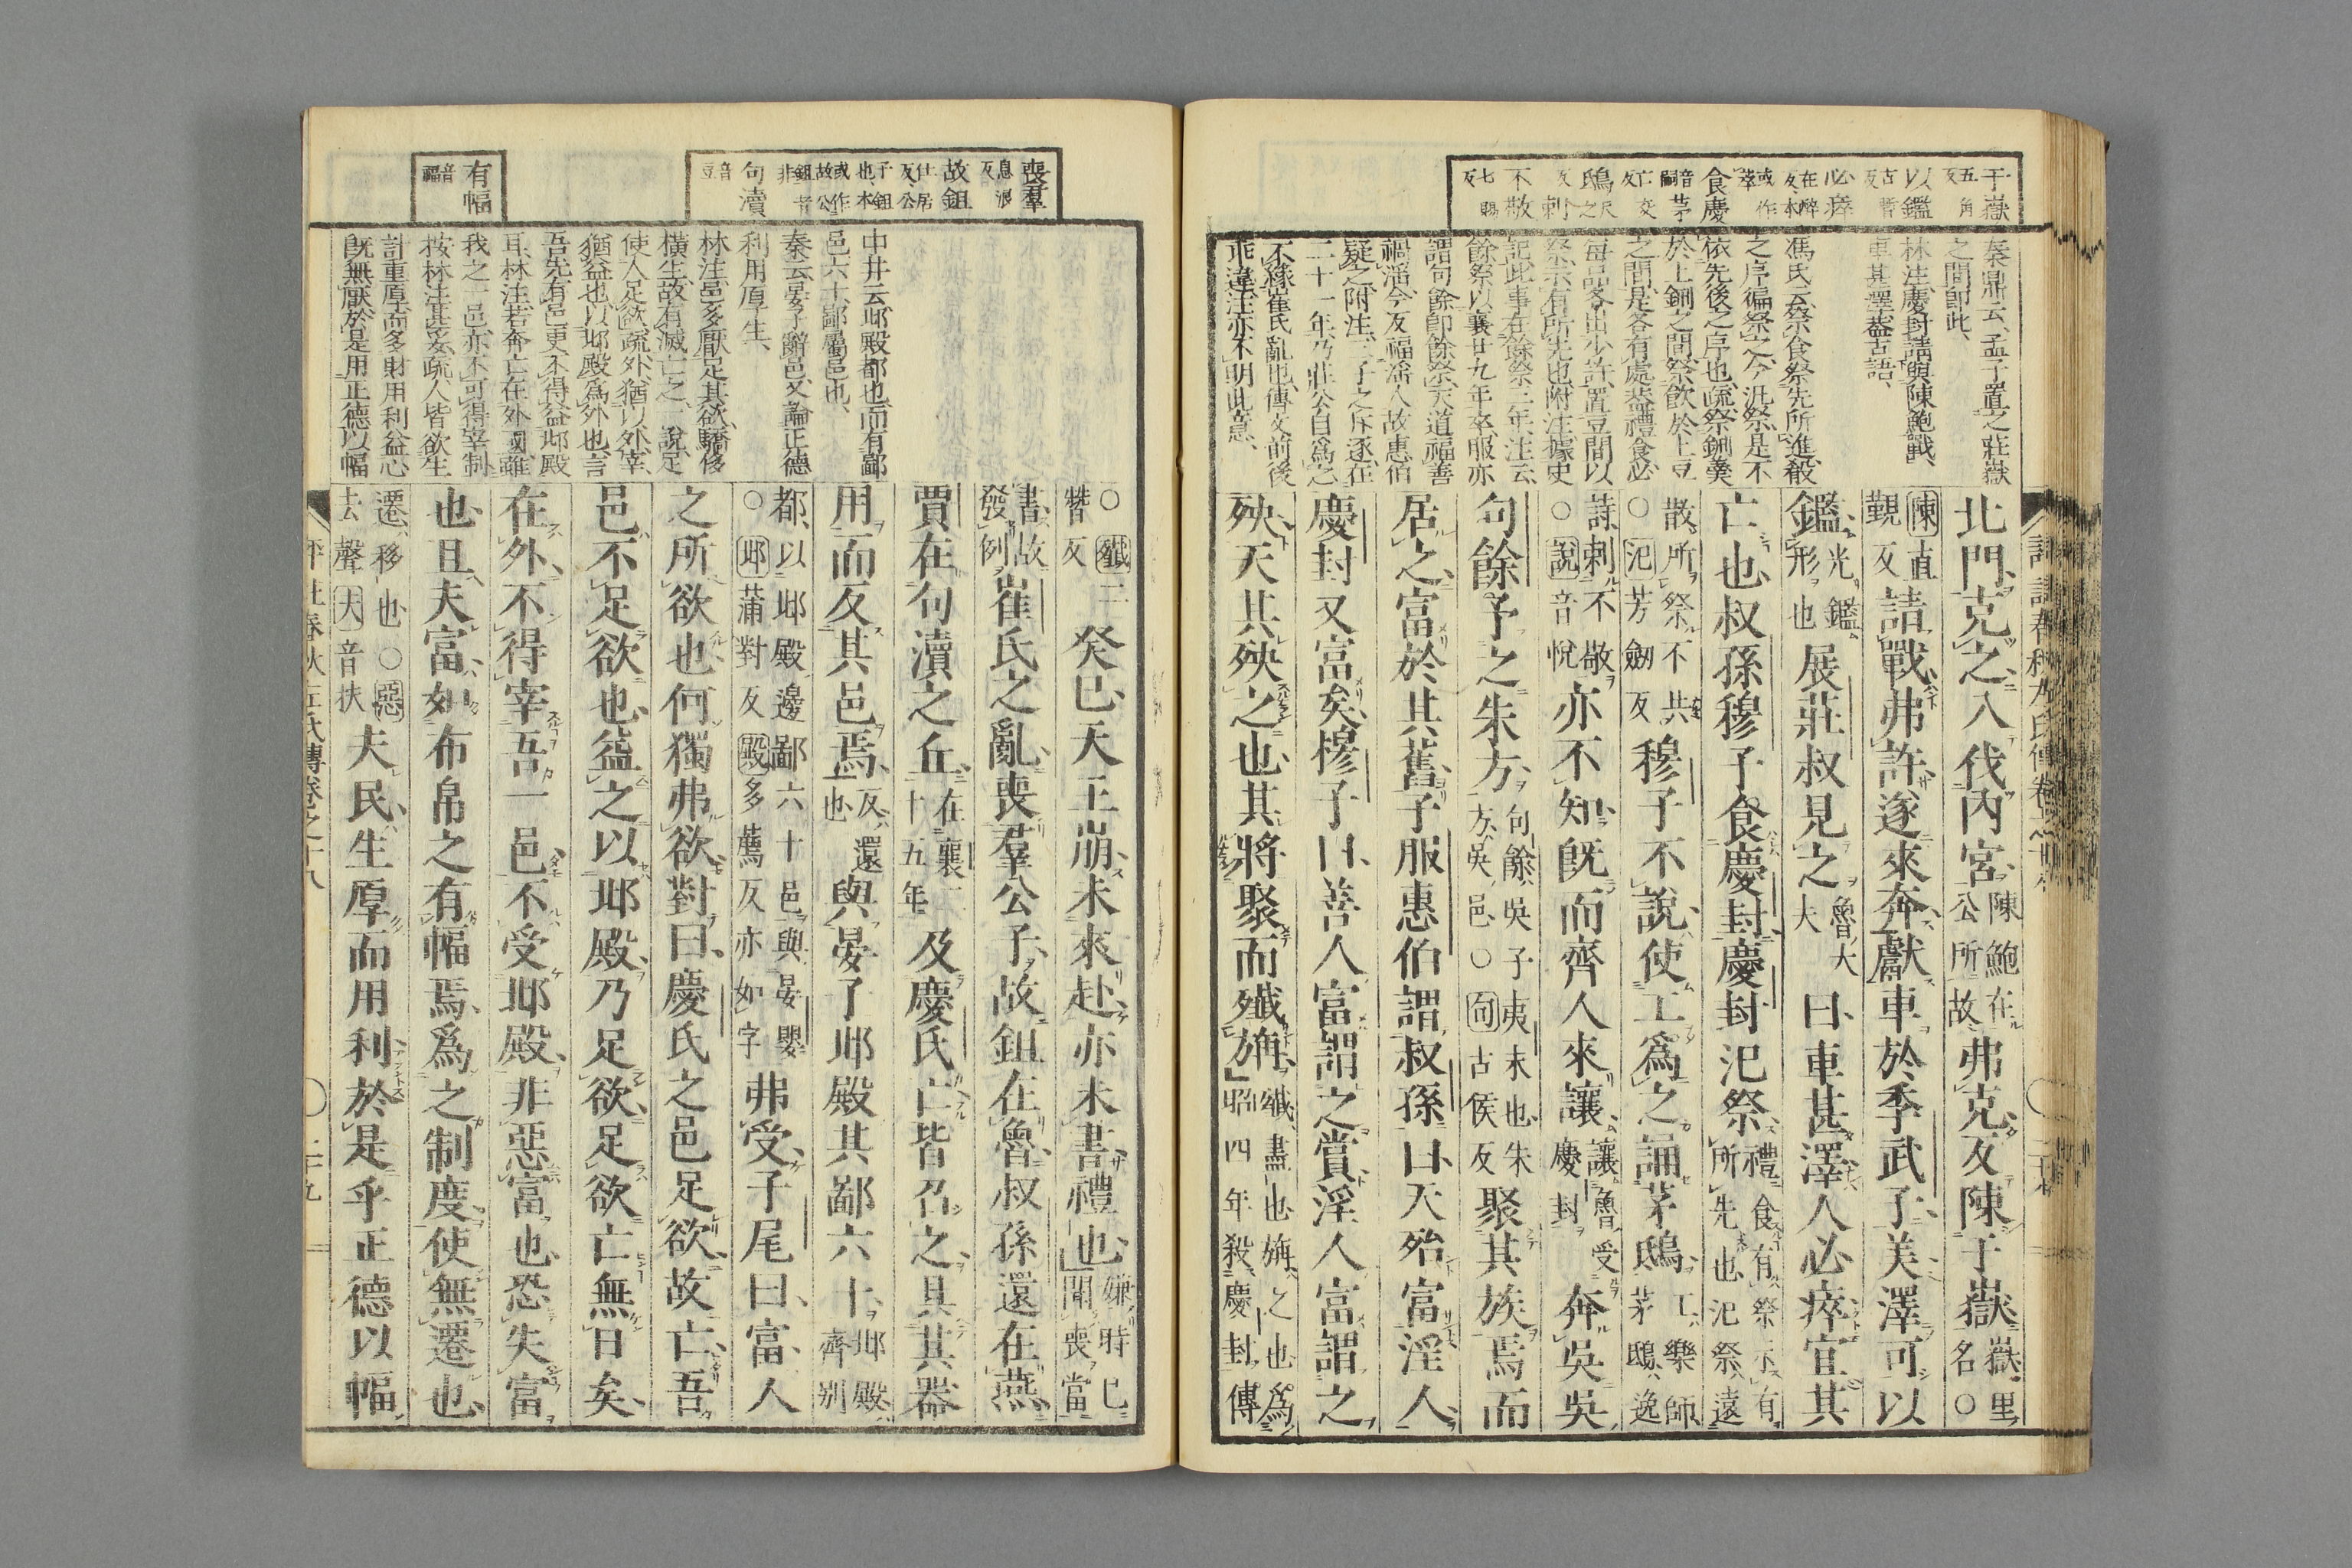 于嶽
五角
反
以鑑
古暫
反
必瘁
在醉
反本
或作
萃
食慶
音
嗣茅
亡交
反
鴟
尺
之
反刺
不敢
七賜
反
秦鼎云孟子置之莊嶽
之間即此
林注慶封請與陳鮑戰
車甚澤蓋古語
馮氏云祭食祭先所進殽
之序徧祭之今汜祭是不
依先後之序也疏祭鉶羹
於上鉶之間祭飲於上豆
之間是各有處蓋禮食必
每品各出少許置豆間以
祭示有所先也附注據史
記此事在餘祭三年注云
餘祭以襄廿九年卒服亦
謂句餘即餘祭天道福善
禍淫今反福淫人故惠伯
疑之附注二子之斥逐在
二十一年乃莊公自爲之
不緣崔氏亂也傳文前後
乖違注亦不明此意
北門克之入伐內宮陳鮑在
公所故弗克反陳于嶽嶽里
名○
陳直
覲反請戰弗許遂來奔獻車於季武子美澤可以
鑑光鑑
形也展莊叔見之魯大
大曰車甚澤人必瘁宜其
亡也叔孫穆子食慶封慶封汜祭禮食有祭示有
所先也汜祭遠
散所祭不共
○汜芳劒反穆子不說使工爲之誦茅鴟工樂師
茅鴟逸
詩刺不敬
○說音悅亦不知既而齊人來讓讓魯受
慶封奔吳吳
句餘予之朱方句餘吳子夷末也朱
方吳邑○句古侯反聚其族焉而
居之富於其舊子服惠伯謂叔孫曰天殆富淫人
慶封又富矣穆子曰善人富謂之賞淫人富謂之
殃天其殃之也其將聚而殲旃殲盡也旃之也爲
昭四年殺慶封傳
喪羣
息浪
反
故鉏
仕居
反公
子鉏
也本
或作
故公
鉏者
非
句瀆
音
豆
有幅
音
福
中井云邶殿都也而有鄙
邑六十鄙屬邑也
秦云晏子辭邑又論正德
利用厚生
林注邑多厭足其欲驕侈
橫生故有滅亡之一說足
使人足欲疏外猶以外宰
猶益也以邶殿爲外也言
吾先有邑更不得益邶殿
耳林注若奔亡在外國雖
我之一邑亦不可得宰制
按林注甚妥疏人皆欲生
計重厚而多財用利益心
既無厭於是用正德以幅
○殲三
朁反癸巳天王崩未來赴亦未書禮也嫌時已
聞喪當
書故
發例崔氏之亂喪羣公子故鉏在魯叔孫還在燕
賈在句瀆之丘在襄二
十五年及慶氏亡皆召之具其器
用而反其邑焉反還
也與晏子邶殿其鄙六十邶殿
齊別
都以邶殿邊鄙六十邑與晏嬰
○邶蒲對反殿多薦反亦如字弗受子尾曰富人
之所欲也何獨弗欲對曰慶氏之邑足欲故亡吾
邑不足欲也益之以邶殿乃足欲足欲亡無日矣
在外不得宰吾一邑不受邶殿非惡富也恐失富
也且夫富如布帛之有幅焉爲之制度使無遷也
遷移也○惡
去聲夫音扶夫民生厚而用利於是乎正德以幅